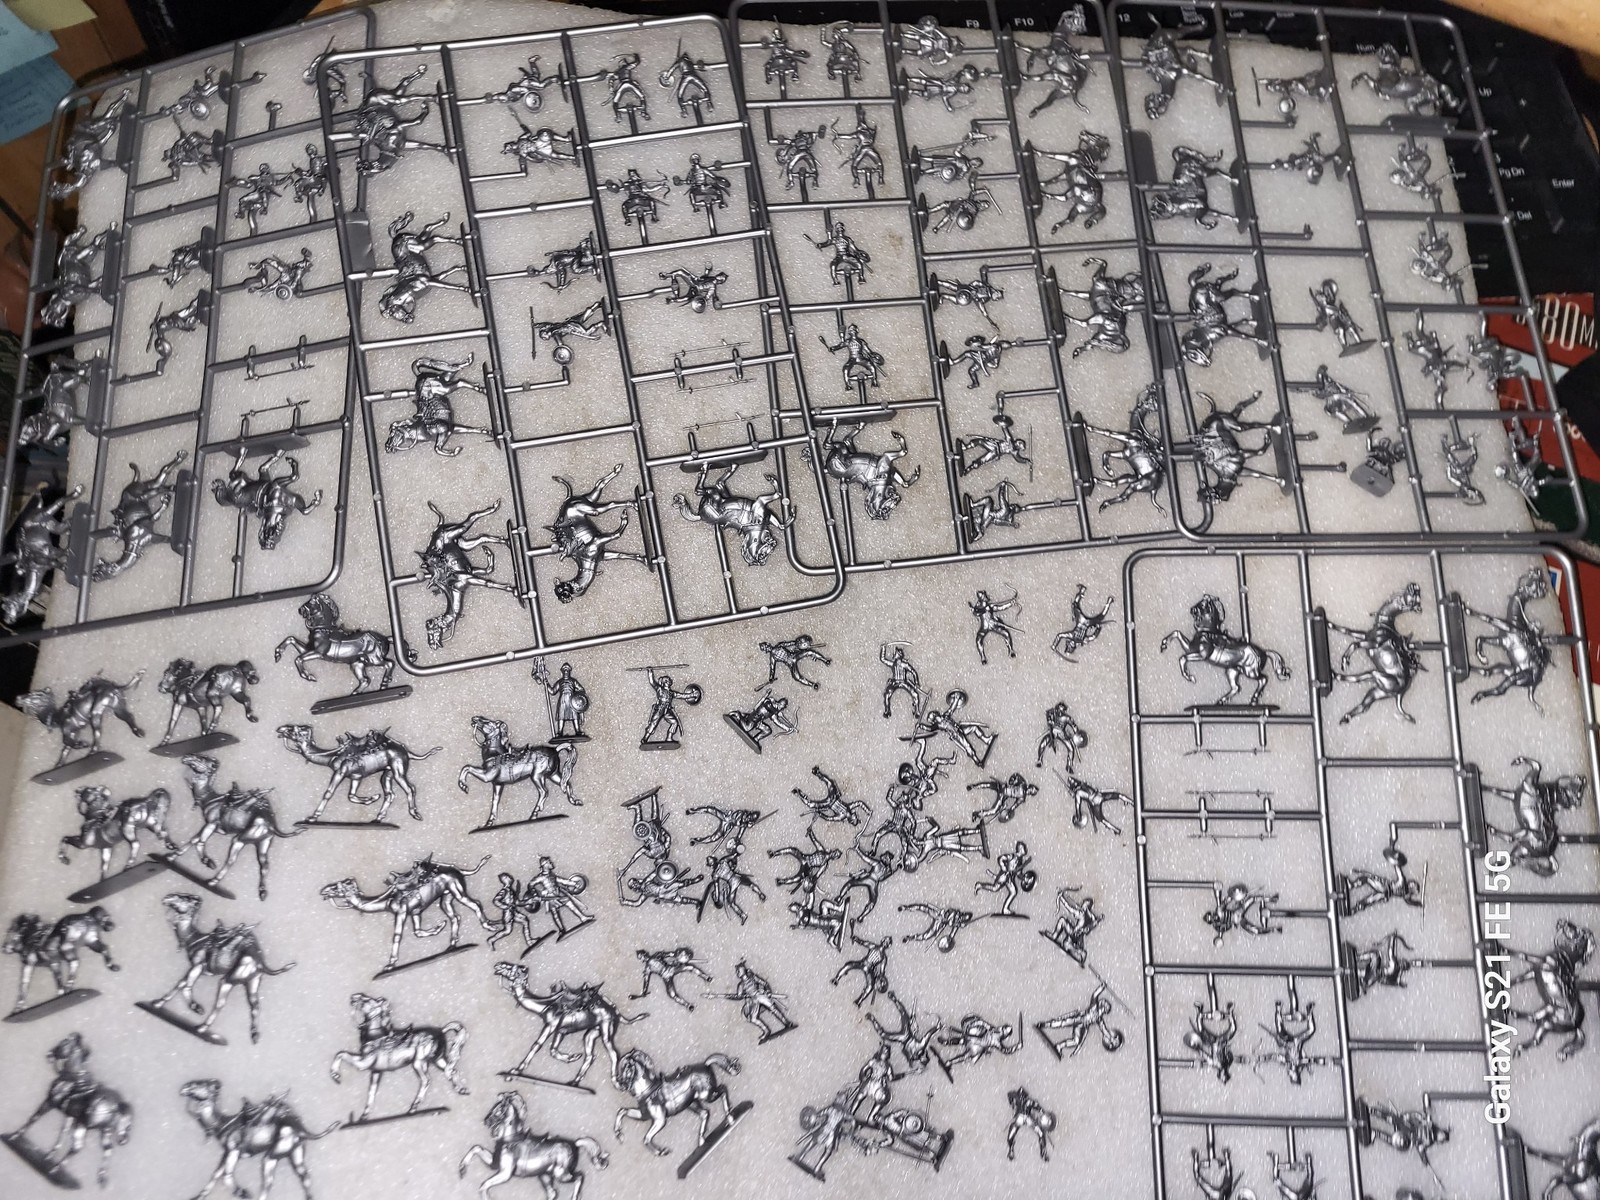 F9
F10
12
Num
Up
+
Pg Dn
Enter
Del
80M.
Galaxy S21 FE 5G